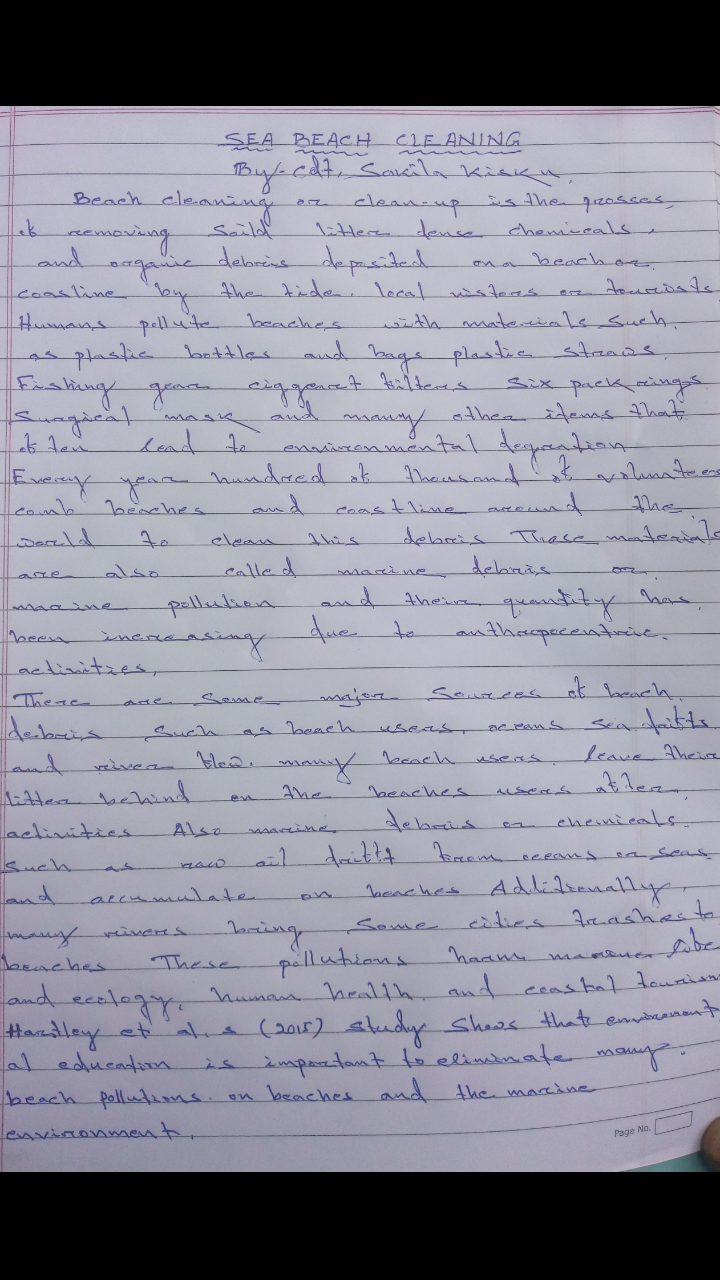 SEA BEACH CLEANING
By- cdt, Sakila Kisku,
Beach cleaning or clean-up is the prosses,
of removing Soild litter dense chemicals,
and organic debris deposited on a beach or
coasline by the tide. local vistors or tourists
Humans pollute beaches with materials such.
as plastic bottles and bags plastic straws.
Fishing gear ciggeart filters six pack rings
Surgical mask and many other items that
often lead to environmental degration
Every year hundred of thousand of volunteers
comb beaches and coastline around the
world to clean this debris These materials
are also called marine debris or
marine pollution and their quantity has
been increasing due to anthropocentric.
activities,
There are some major Sources of beach.
debris Such as beach users, oceans sea drifts
and river flow. many beach users. leave their
litter behind on the beaches users after
activities Also marine debris or chemicals
such as raw oil drift from oceans or seas
and accumulate on beaches Additionally,
many rivers bring some cities trashes to
beaches These pollutions harm marine
and ecology, human health and coastal tourism
Hartley et al.s (2015) study shows that environment
al education is important to eliminate many.
beach pollutions. on beaches and the marine
environment,
Page No.